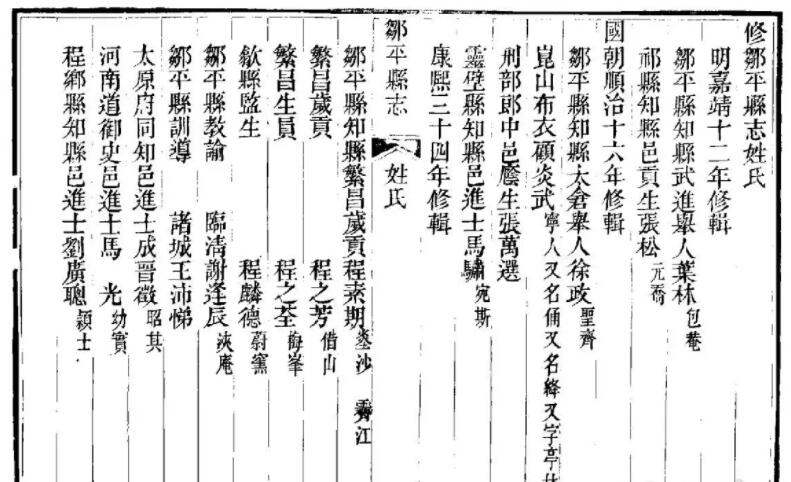 修鄒平縣志姓氏
明嘉靖十二年修輯
鄒平縣知縣武進舉人葉林 包菴
祁縣知縣邑貢生張松 元喬
國朝順治十六年修輯
鄒平縣知縣太倉舉人徐政 聖齊
崑山布衣顧炎武 寧人又名甬又名絳又字亭
刑部郎中邑廕生張萬選
靈壁縣知縣邑進士馬驌 宛斯
康熙三十四年修輯
鄒平縣志 姓氏
鄒平縣知縣繁昌歲貢程素期 江
繁昌歲貢 程之芳 借山
繁昌生員 程之荃 梅峯
歙縣監生 程麟德 蔚窯
鄒平縣教諭 臨清謝逢辰 浹庵
鄒平縣訓導 諸城王沛悌
太原府同知邑進士成晉徵 昭其
河南道御史邑進士馬光 幼實
程鄉縣知縣邑進士劉廣聰 穎士